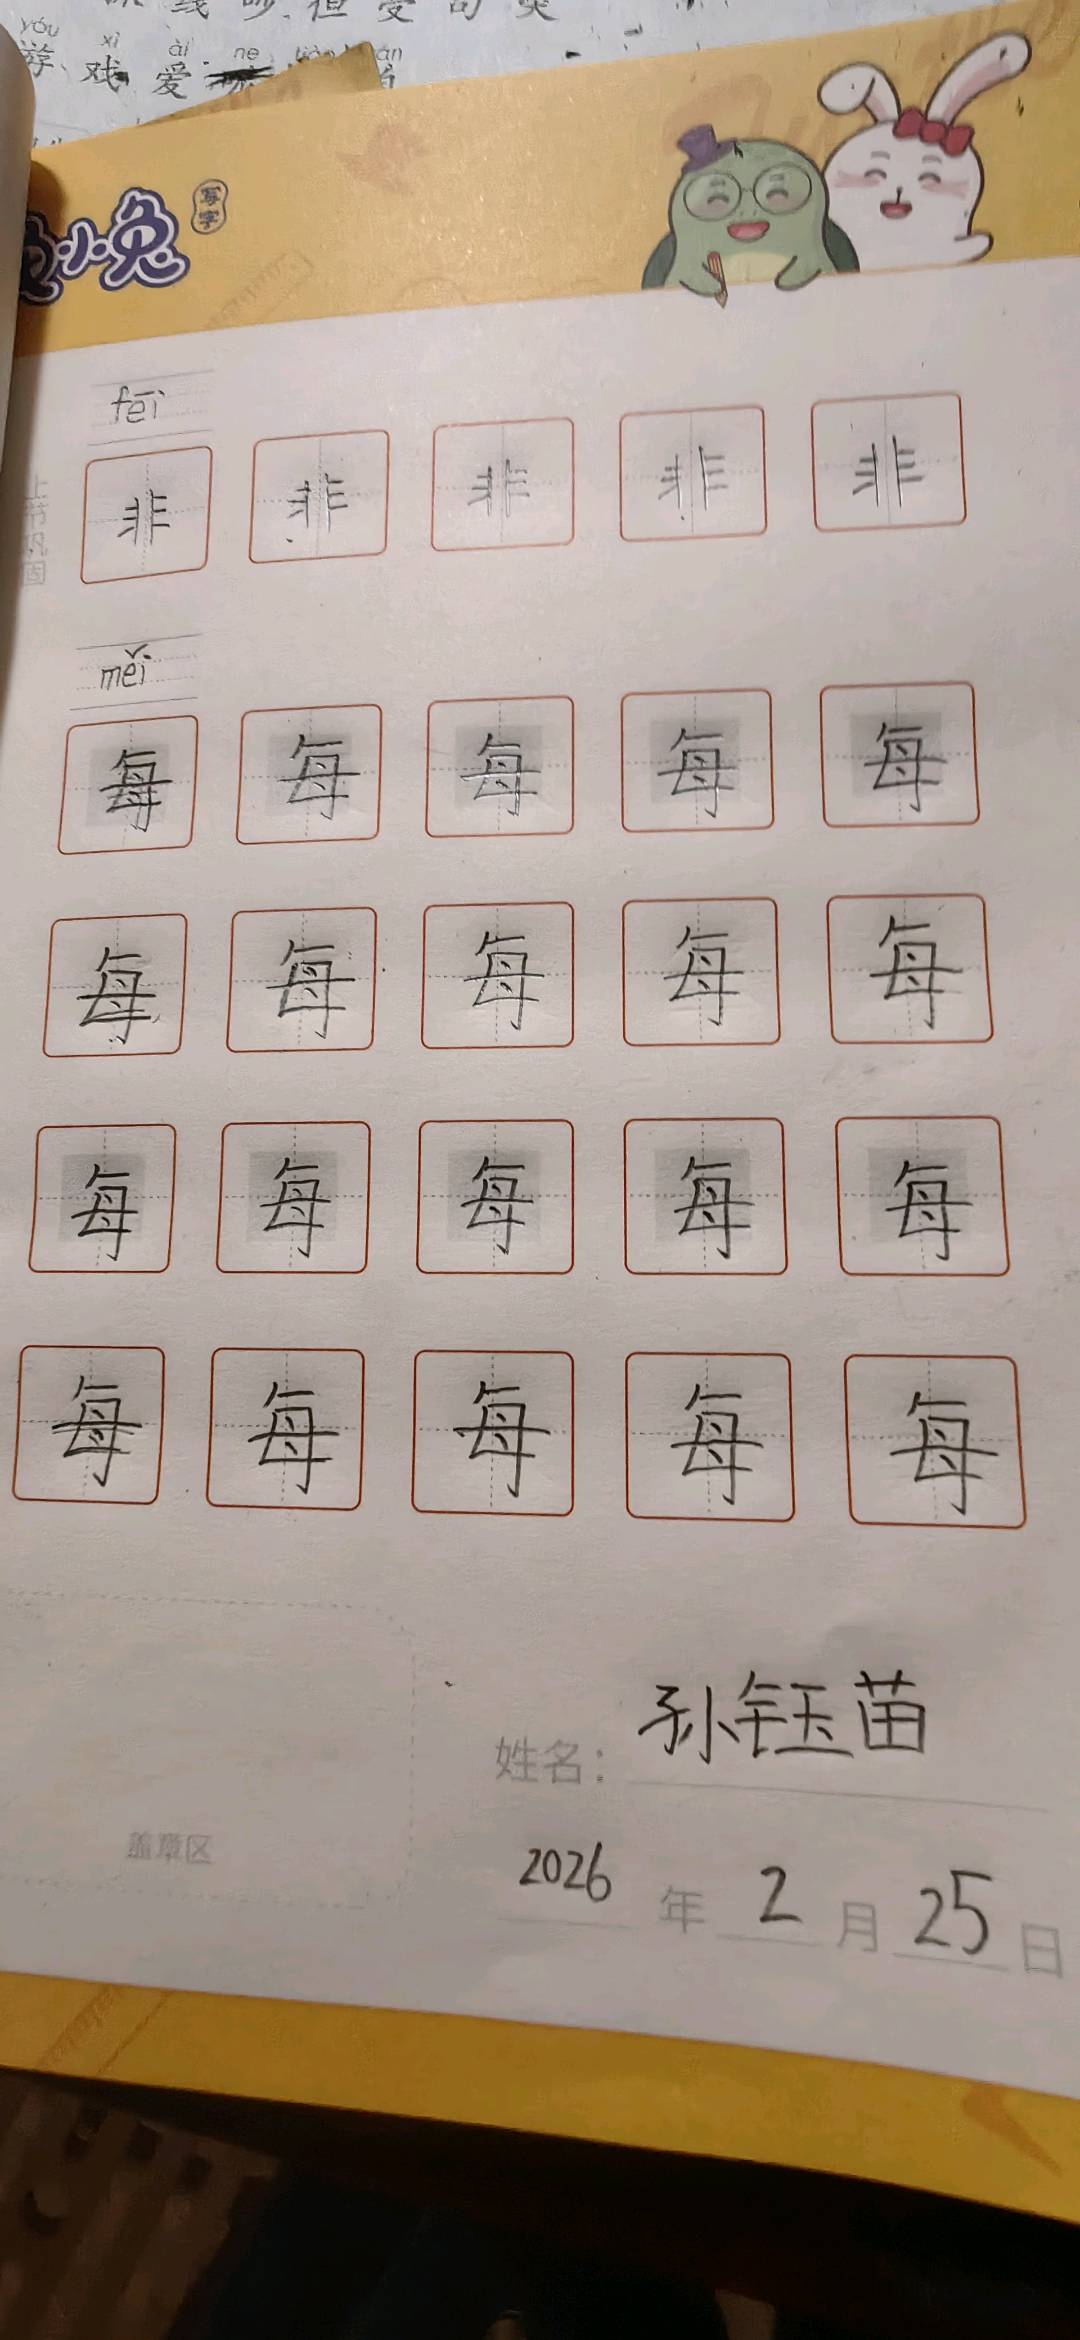 yóu xì ài ne
游 戏 爱
小兔 写字
fēi
非 非 非 非 非
měi
每 每 每 每 每
每 每 每 每 每
每 每 每 每 每
每 每 每 每 每
姓名：孙钰苗
盖章区
2026 年 2 月 25 日